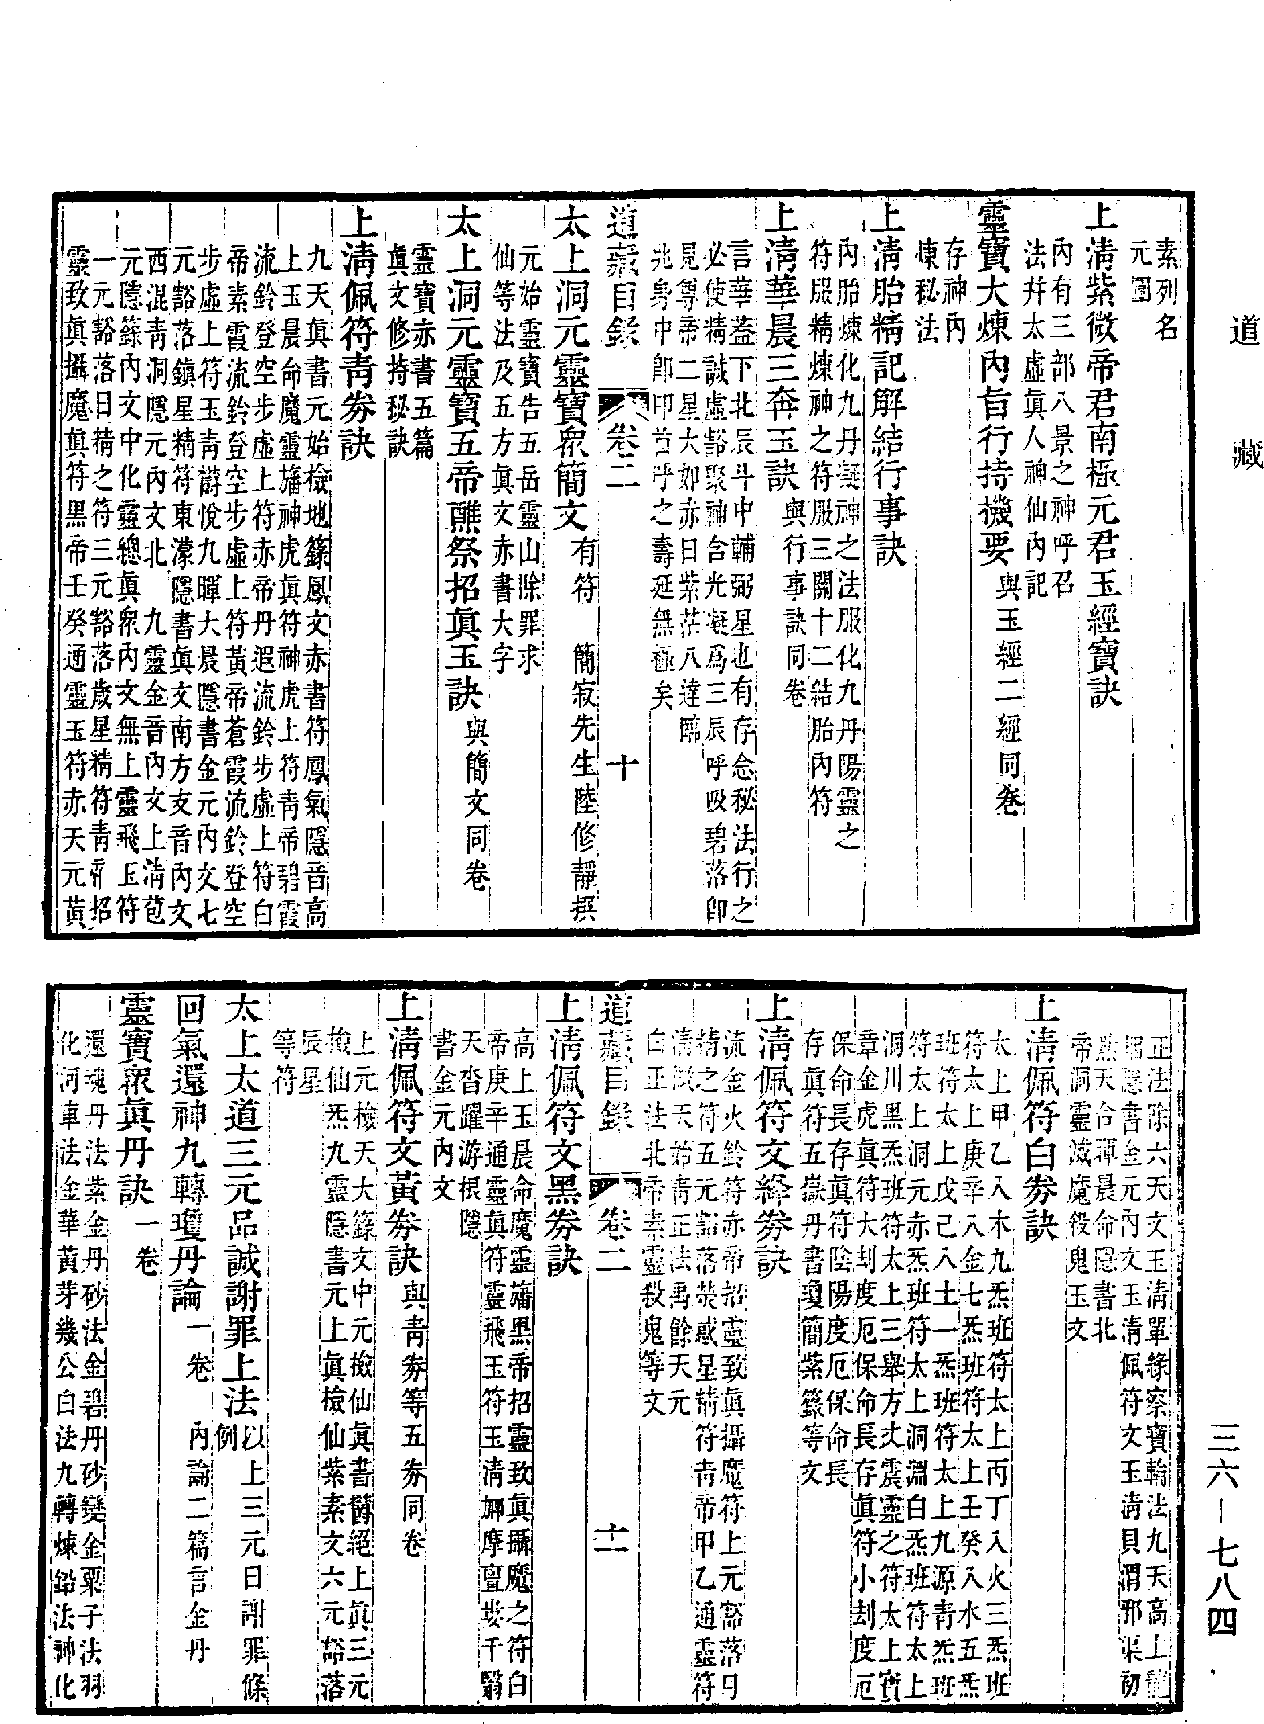 道藏
素列名
元圖
上清紫微帝君南極元君玉經寶訣
內有三部八景之神呼召
法幷太虛眞人神仙內記
靈寶大煉內旨行持機要與玉經二經同卷
存神內
煉秘法
上清胎精記解結行事訣
內胎煉化九丹凝神之法服化九丹陽靈之
符服精煉神之符服三關十二結胎內符
上清華晨三奔玉訣與行事訣同卷
言華蓋下北辰斗中輔弼星也有存念秘法行之
必使精誠虛豁聚神合光凝爲三辰呼吸碧落卽
見尊帝二星大如赤日紫茫八達臨
兆身中卽叩首呼之壽延無極矣
道藏目錄 卷二 十
太上洞元靈寶眾簡文有符 簡寂先生陸修靜撰
元始靈寶告五岳靈山除罪求
仙等法及五方眞文赤書大字
太上洞元靈寶五帝醮祭招眞玉訣與簡文同卷
靈寶赤書五篇
眞文修持秘訣
上清佩符青券訣
九天眞書元始檢地籙鳳文赤書符鳳氣隱音高
上玉晨命魔靈旛神虎眞符神虎上符青帝碧霞
流鈴登空步虛上符赤帝丹遐流鈴步虛上符白
帝素霞流鈴登空步虛上符黃帝蒼霞流鈴登空
步虛上符玉青欝悅九暉大晨隱書金元內文七
元豁落鎮星精符東濛隱書眞文南方支音內文
西混青洞隱元內文北 九靈金音內文上清苞
元隱籙內文中化靈總眞眾內文無上靈飛玉符
一元豁落日精之符三元豁落歲星精符青帝招
靈致眞攝魔眞符黑帝壬癸通靈玉符赤天元黃
正法除六天文玉清單綠察寶輪法九天高上龍
程隱書金元內文玉清佩符文玉清貝渭邪渠初
點天合暉晨命隱書北
帝洞靈滅魔役鬼玉文
上清佩符白券訣
太上甲乙入木九炁班符太上丙丁入火三炁班
符太上庚辛入金七炁班符太上壬癸入水五炁
班符太上戊己入土一炁班符太上九源青炁班
符太上洞元赤炁班符太上洞淵白炁班符太上
洞川黑炁班符太上三舉方丈震靈之符太上寶
章金虎眞符大刦度厄保命長存眞符小刦度厄
保命長存眞符陰陽度厄保命長
存眞符五嶽丹書瓊簡紫籙等文
上清佩符文絳券訣
流金火鈴符赤帝招靈致眞攝魔符上元豁落日
精之符五元豁落熒惑星精符青帝甲乙通靈符
清微天始青正法禹餘天元
白正法北帝素靈殺鬼等文
道藏目錄 卷二 十一
上清佩符文黑券訣
高上玉晨命魔靈旛黑帝招靈致眞攝魔之符白
帝庚辛通靈眞符靈飛玉符玉清娜摩亶婁千翳
天沓躍游根隱
書金元內文
上清佩符文黃券訣與青券等五券同卷
上元檢天大籙文中元檢仙眞書簡絕上眞三元
檢仙炁九靈隱書元上眞檢仙紫素文六元豁落
辰星
等符
太上太道三元品誡謝罪上法以上三元日謝罪條
例
回氣還神九轉瓊丹論一卷 內論二篇言金丹
靈寶眾眞丹訣一卷
還魂丹法紫金丹砂法金碧丹砂變金粟子法羽
化河車法金華黃芽幾公白法九轉煉鉛法神化
三六-七八四